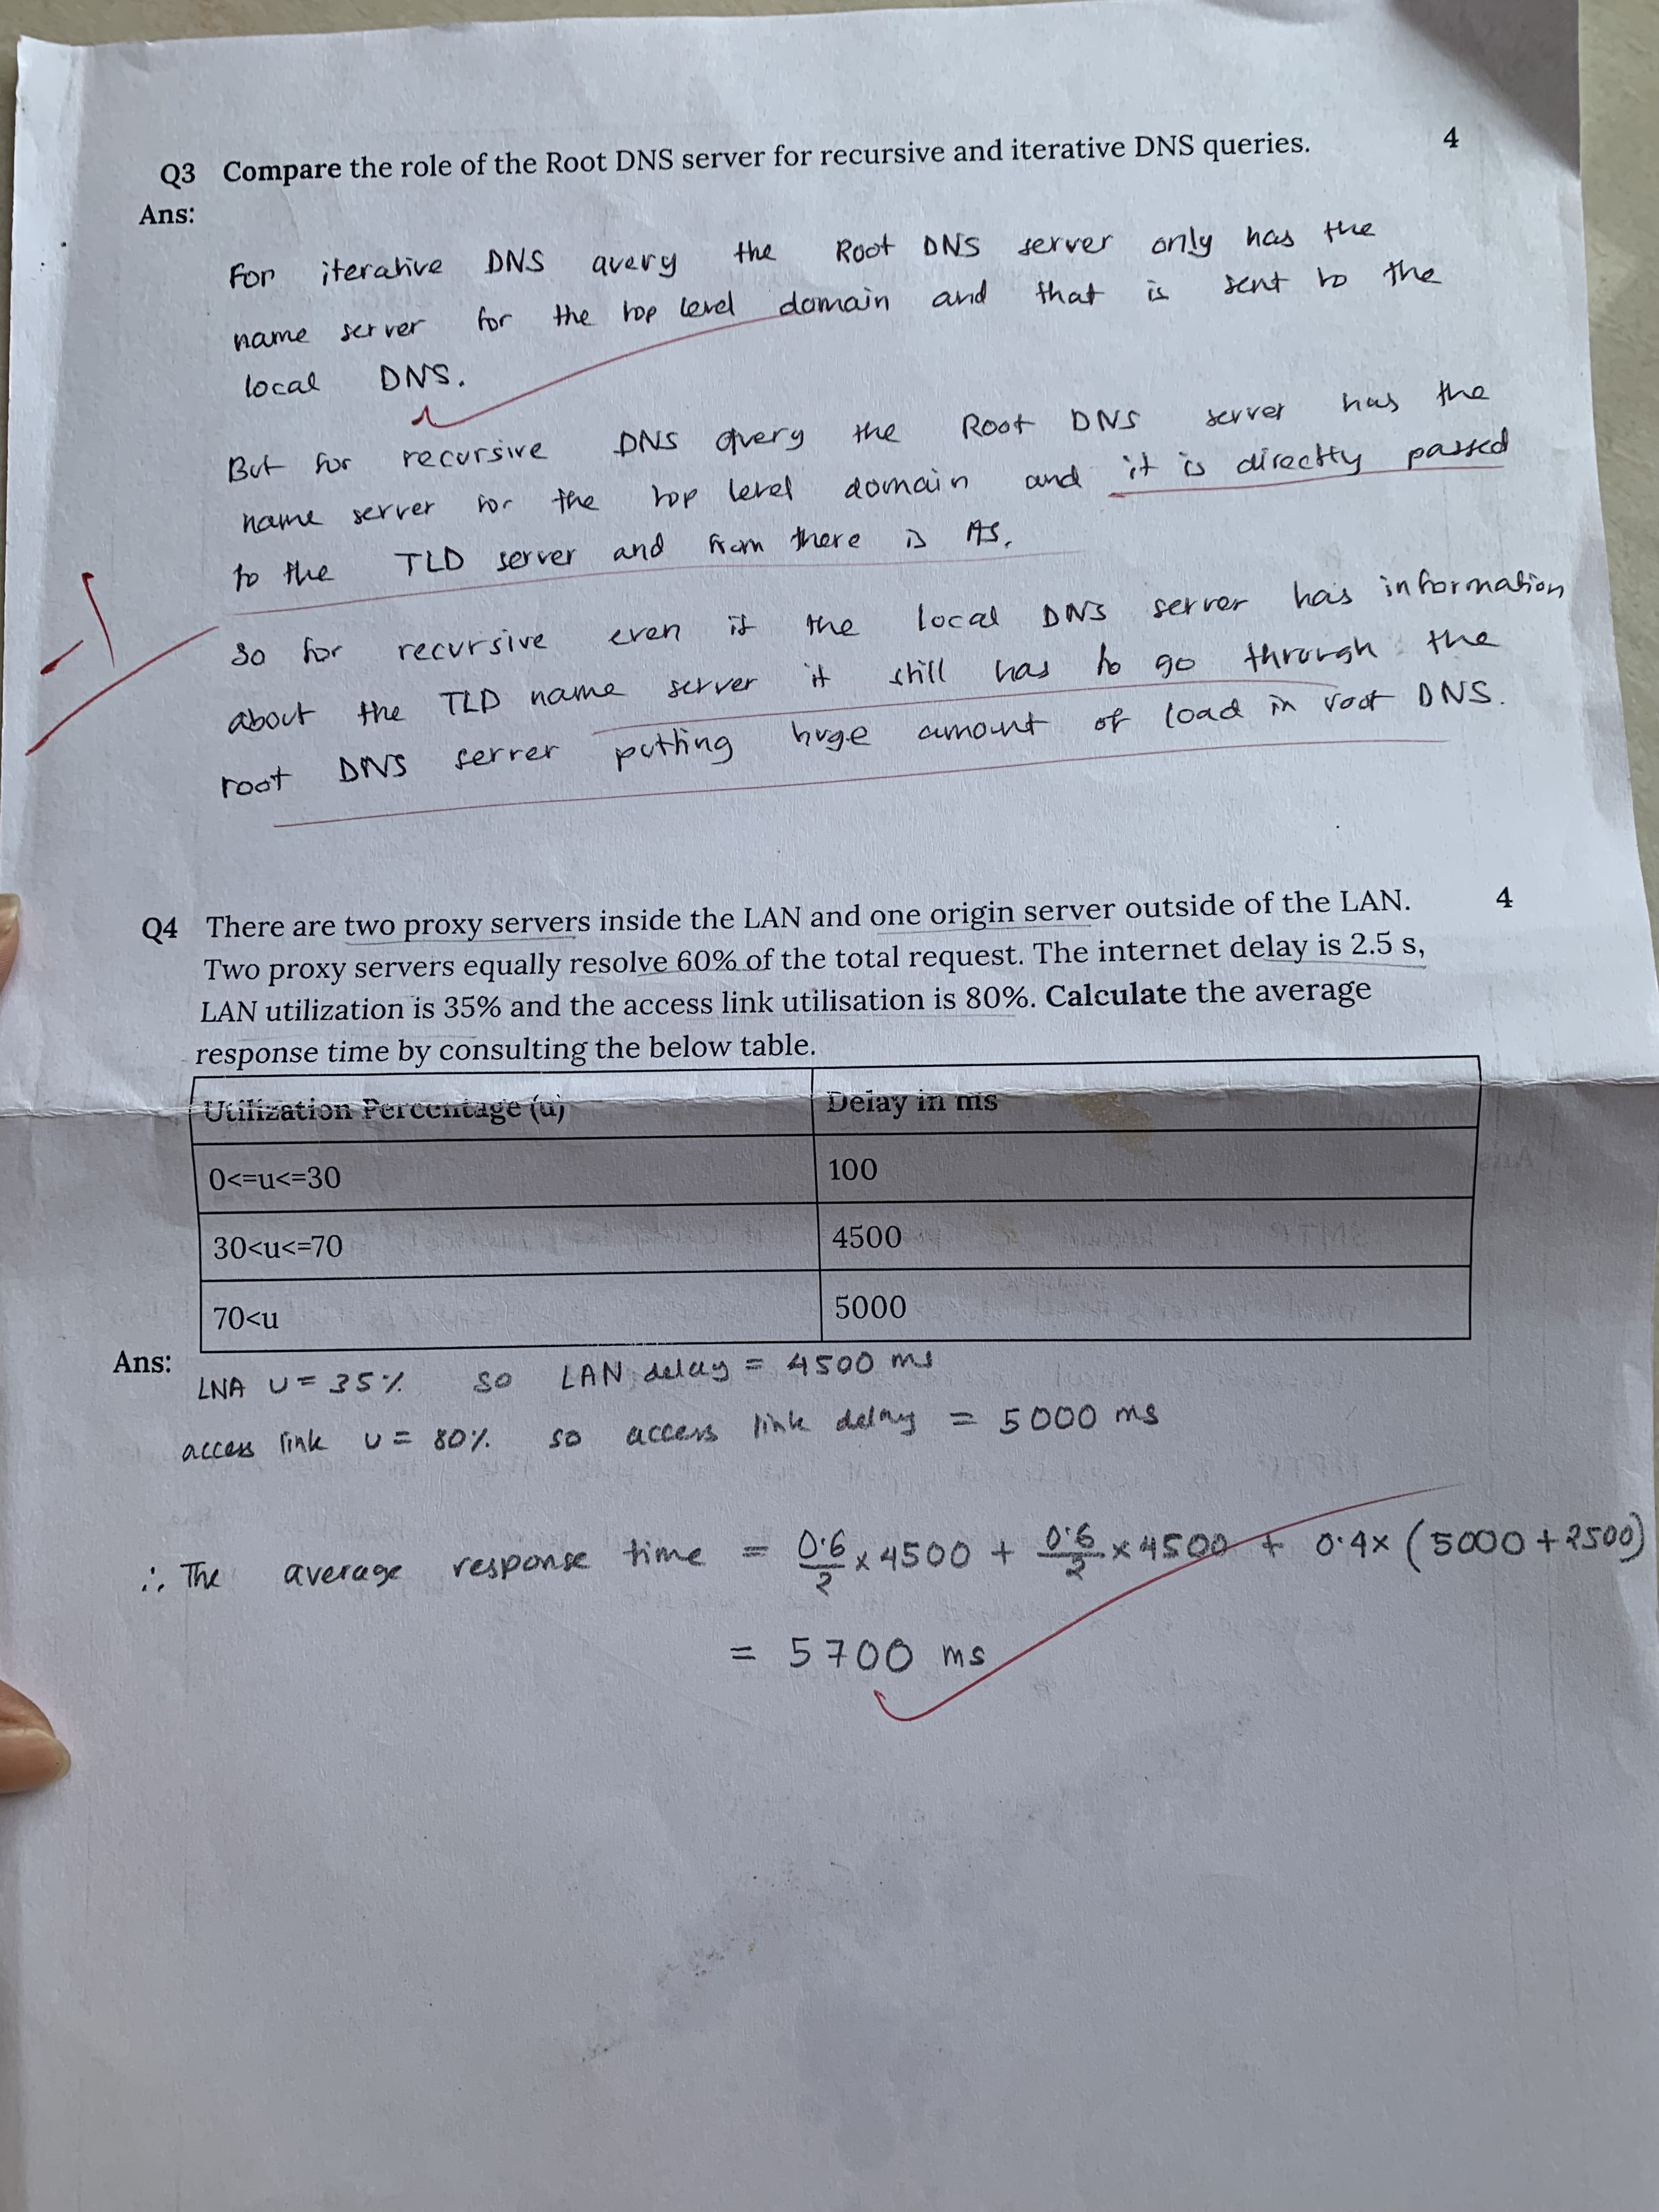 Q3 Compare the role of the Root DNS server for recursive and iterative DNS queries. 4
Ans:
For iterative DNS avery the Root DNS server only has the
name server for the top level domain and that is sent to the
local DNS.
But for recursive DNS query the Root DNS server has the
name server for the top level domain and it is directly passed
to the TLD server and from there is AS.
-1
So for recursive even if the local DNS server has information
about the TLD name server it still has to go through the
root DNS server putting huge amount of load in root DNS.
Q4 There are two proxy servers inside the LAN and one origin server outside of the LAN. 4
Two proxy servers equally resolve 60% of the total request. The internet delay is 2.5 s,
LAN utilization is 35% and the access link utilisation is 80%. Calculate the average
response time by consulting the below table.
Utilization Percentage (u) Delay in ms
0<=u<=30 100
30<u<=70 4500
70<u 5000
Ans:
LNA U = 35% so LAN delay = 4500 ms
access link U = 80% so access link delay = 5000 ms
∴ The average response time = 0.6/2 × 4500 + 0.6/2 × 4500 + 0.4× (5000 + 2500)
= 5700 ms